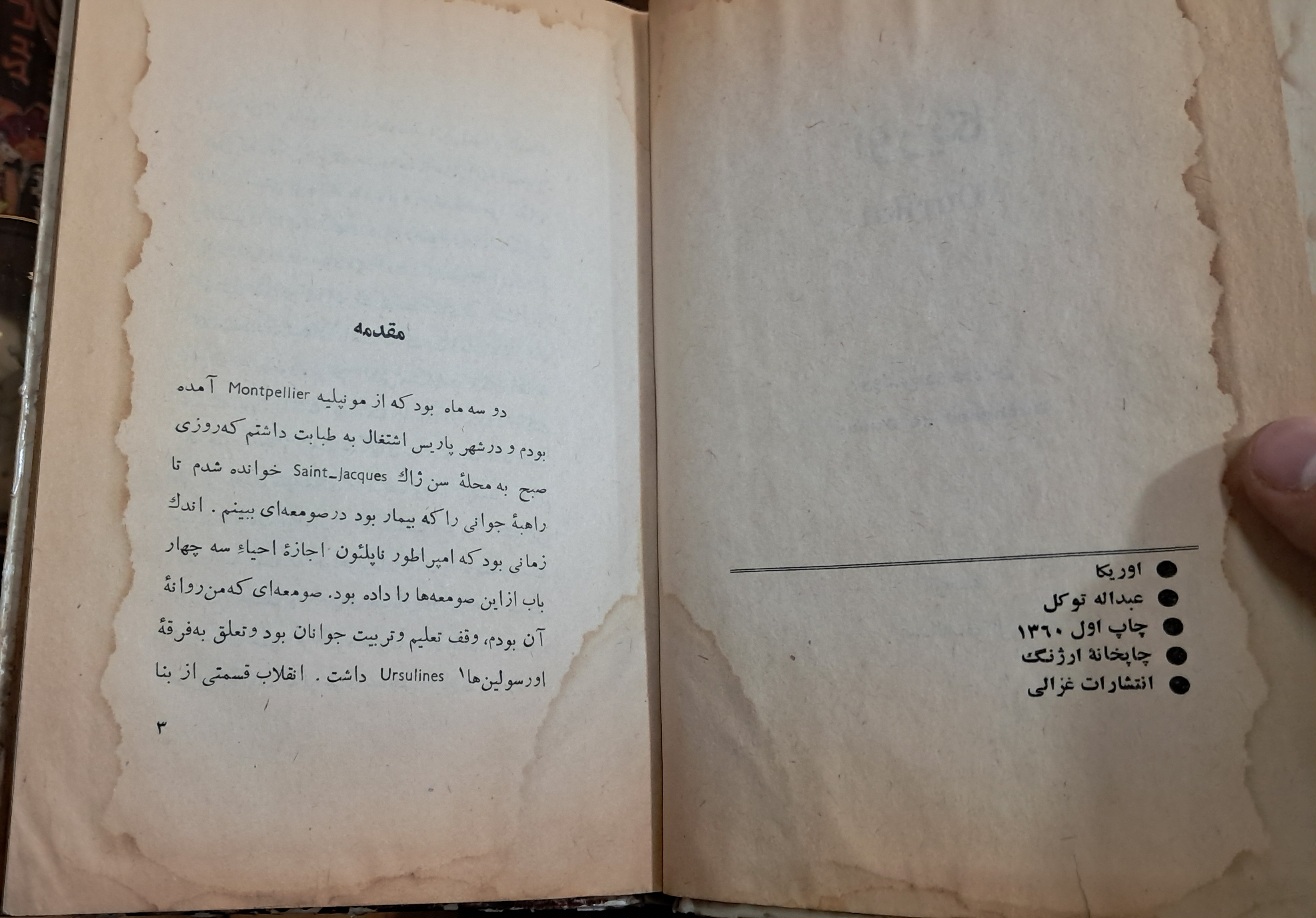 اوریکا
عبداله توکل
چاپ اول ۱۳۶۰
چاپخانهٔ ارژنگ
انتشارات غزالی
مقدمه
دو سه ماه بود که از مونپلیه Montpellier آمده
بودم و درشهر پاریس اشتغال به طبابت داشتم که‌روزی
صبح به محلهٔ سن ژاك Saint-Jacques خوانده شدم تا
راهبهٔ جوانی را که بیمار بود درصومعه‌ای ببینم . اندك
زمانی بود که امپراطور ناپلئون اجازهٔ احیاءِ سه چهار
باب ازاین صومعه‌ها را داده بود. صومعه‌ای که‌من‌روانهٔ
آن بودم، وقف تعلیم وتربیت جوانان بود وتعلق به‌فرقهٔ
اورسولین‌ها۱ Ursulines داشت . انقلاب قسمتی از بنا
۳